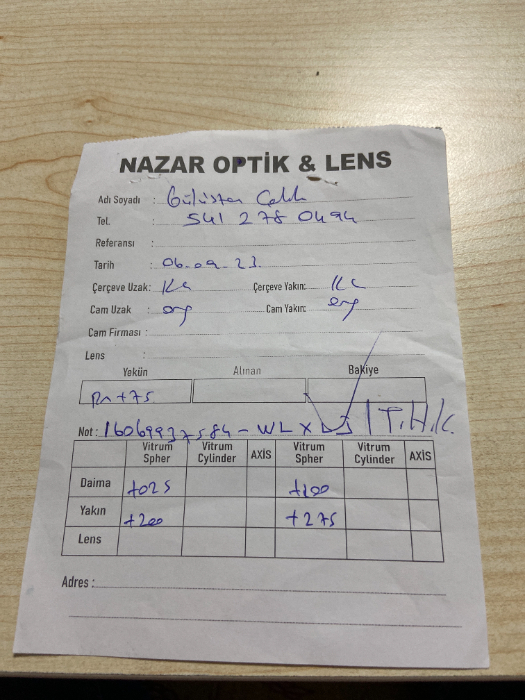 NAZAR OPTİK & LENS
Adı Soyadı : Gülistan
Tel. : 541 278 0494
Referansı :
Tarih : 06.09.23
Çerçeve Uzak: Kc Çerçeve Yakın: Kc
Cam Uzak : org Cam Yakın: org
Cam Firması :
Lens :
Yekün Alınan Bakiye
+75
Not : 16069937584 - WLX T.H.K.
Vitrum Spher Vitrum Cylinder AXİS Vitrum Spher Vitrum Cylinder AXİS
Daima +025 +100
Yakın +200 +275
Lens
Adres :